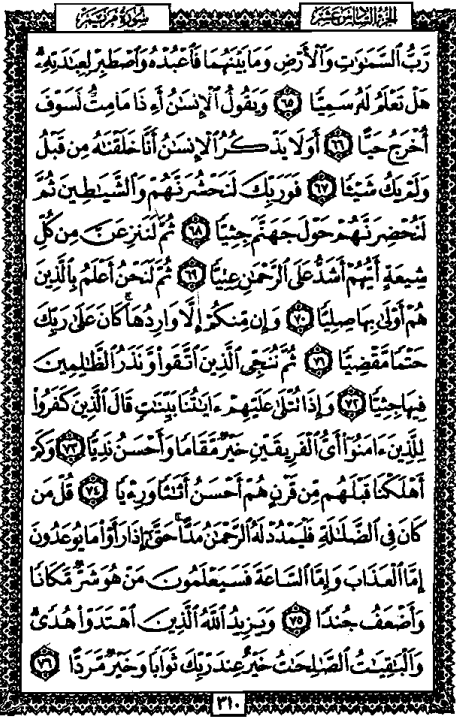 سورة مريم
الجزء السادس عشر
رَّبُّ ٱلسَّمَٰوَٰتِ وَٱلْأَرْضِ وَمَا بَيْنَهُمَا فَٱعْبُدْهُ وَٱصْطَبِرْ لِعِبَٰدَتِهِۦ
هَلْ تَعْلَمُ لَهُۥ سَمِيًّا ٦٥ وَيَقُولُ ٱلْإِنسَٰنُ أَءِذَا مَامِتُّ لَسَوْفَ
أُخْرَجُ حَيًّا ٦٦ أَوَلَا يَذْكُرُ ٱلْإِنسَٰنُ أَنَّا خَلَقْنَٰهُ مِن قَبْلُ
وَلَمْ يَكُ شَيْـًٔا ٦٧ فَوَرَبِّكَ لَنَحْشُرَنَّهُمْ وَٱلشَّيَٰطِينَ ثُمَّ
لَنُحْضِرَنَّهُمْ حَوْلَ جَهَنَّمَ جِثِيًّا ٦٨ ثُمَّ لَنَنزِعَنَّ مِن كُلِّ
شِيعَةٍ أَيُّهُمْ أَشَدُّ عَلَى ٱلرَّحْمَٰنِ عِتِيًّا ٦٩ ثُمَّ لَنَحْنُ أَعْلَمُ بِٱلَّذِينَ
هُمْ أَوْلَىٰ بِهَا صِلِيًّا ٧٠ وَإِن مِّنكُمْ إِلَّا وَارِدُهَا ۚ كَانَ عَلَىٰ رَبِّكَ
حَتْمًا مَّقْضِيًّا ٧١ ثُمَّ نُنَجِّى ٱلَّذِينَ ٱتَّقَوا۟ وَّنَذَرُ ٱلظَّٰلِمِينَ
فِيهَا جِثِيًّا ٧٢ وَإِذَا تُتْلَىٰ عَلَيْهِمْ ءَايَٰتُنَا بَيِّنَٰتٍ قَالَ ٱلَّذِينَ كَفَرُوا۟
لِلَّذِينَ ءَامَنُوٓا۟ أَىُّ ٱلْفَرِيقَيْنِ خَيْرٌ مَّقَامًا وَأَحْسَنُ نَدِيًّا ٧٣ وَكَمْ
أَهْلَكْنَا قَبْلَهُم مِّن قَرْنٍ هُمْ أَحْسَنُ أَثَٰثًا وَرِءْيًا ٧٤ قُلْ مَن
كَانَ فِى ٱلضَّلَٰلَةِ فَلْيَمْدُدْ لَهُ ٱلرَّحْمَٰنُ مَدًّا ۚ حَتَّىٰٓ إِذَا رَأَوْا۟ مَا يُوعَدُونَ
إِمَّا ٱلْعَذَابَ وَإِمَّا ٱلسَّاعَةَ فَسَيَعْلَمُونَ مَنْ هُوَ شَرٌّ مَّكَانًا
وَأَضْعَفُ جُندًا ٧٥ وَيَزِيدُ ٱللَّهُ ٱلَّذِينَ ٱهْتَدَوْا۟ هُدًى ۗ
وَٱلْبَٰقِيَٰتُ ٱلصَّٰلِحَٰتُ خَيْرٌ عِندَ رَبِّكَ ثَوَابًا وَخَيْرٌ مَّرَدًّا ٧٦
٣١٠